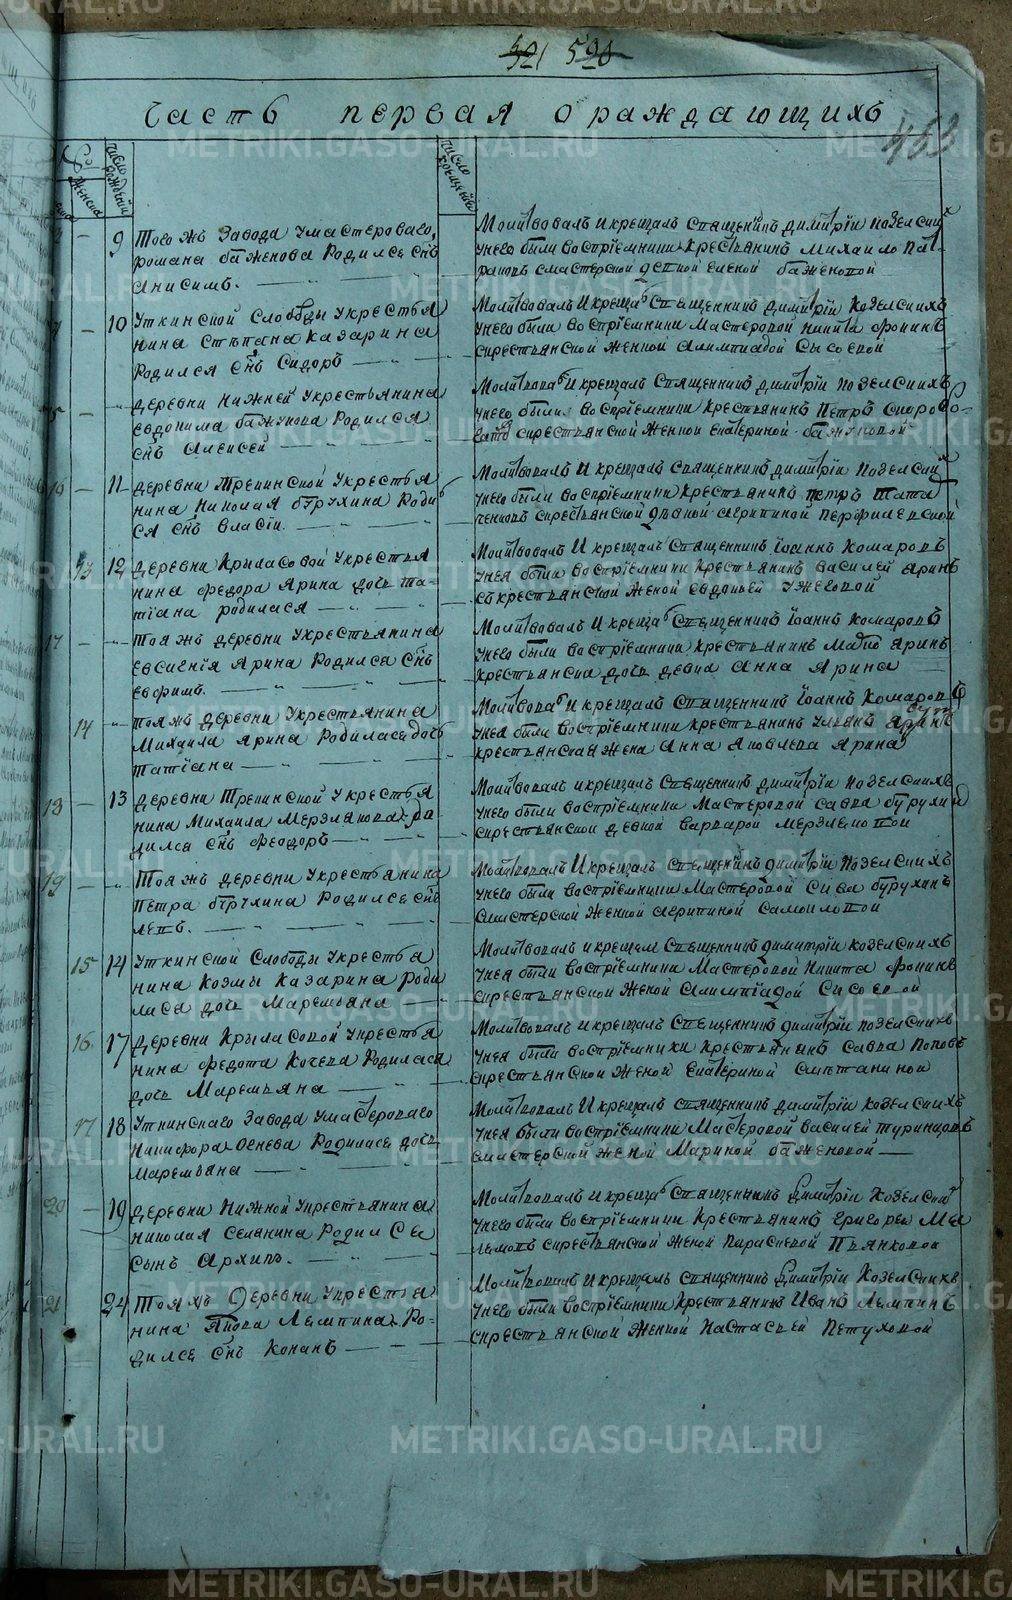 METRIKI.GASO-URAL.RU
521 590
Часть первая о раждающихъ
453
Число рождений
Число крещения
Женска
9 Того жъ Завода Умастероваго
романа баженова Родилсе снъ
Анисимъ.
Молитвовалъ И крещалъ Священникъ димитрiи козелскихъ
Унего были восприемники крестьянинъ Михаило
смастерской дочной еленой баженовой
10 Уткинской Слободы Укрестья
нина Степана казарина
Родился снъ Сидоръ
Молитвовалъ И крещалъ Священникъ димитрiи козелскихъ
Унего были восприемники Мастеровой никита фокинъ
скрестьянской женкой Алимпиадой Сысоевой
деревни нижней Укрестьянина
евдокима бажукова Родился
снъ Алексей
Молитвовалъ И крещалъ Священникъ димитрiи козелскихъ
Унего были восприемники крестьянинъ Петръ
скрестьянской женкой екатериной бажуковой
16 11 деревни Трекинской Укрестья
нина Николая бтрухина Роди
ся снъ власiи
Молитвовалъ И крещалъ священникъ димитрiи козелских
Унего были восприемники крестьянинъ петръ
скрестьянской девкой Агрипиной перфилевской
12 деревни Крыласовой Укрестья
нина федора Ярина дочь та-
тiана родилася
Молитвовалъ И крещалъ Священникъ Iоаннъ Комаровъ
Унея были восприемники крестьянинъ василей Яринъ
съ крестьянской женой евдокией Ужеговой
17 Тояжъ деревни Укрестьянина
евсигнiя Ярина Родилса снъ
ефимъ.
Молитвовалъ И крещалъ Священникъ Iоаннъ Комаровъ
Унего были восприемники крестьянинъ Яринъ
крестьянска дочь девка Анна Ярина
14 тояжъ деревни Укрестьянина
Михаила Ярина Родиласе дочь
Татiана
Молитвовалъ И крещалъ священникъ Iоаннъ Комаровъ
Унея были восприемники крестьянинъ Ульянъ Яринъ
крестьянская жена Анна Яковлева Ярина
18 13 деревни Трекинской Укрестья
нина Михаила Мерзлякова Ро
дился снъ Феодоръ
Молитвовалъ и крещалъ священникъ димитрiи козелскихъ
Унего были восприемники Мастеровой савва бурухин
скрестьянской девкой варварой Мерзлековой
19 Тояжъ деревни Укрестьянина
Петра бтрухина Родилсе снъ
левъ.
Молитвовалъ И крещалъ священникъ димитрiи козелскихъ
Унего были восприемники Мастеровой бурухинъ
смастерской женкой Агрипиной Самоиловой
15 14 Уткинской Слободы Укрестья
нина Козмы Казарина Роди
лася дочь Маремьяна
Молитвовалъ и крещалъ священникъ димитрiи козелскихъ
Унея были восприемники Мастеровой Никита фокинъ
скрестьянской женой Алимпiадой Сисоевой
16 17 деревни Крыласовой Укрестья
нина федота Кочева Родиласа
дочь Маремьяна
Молитвовалъ И крещалъ Священникъ димитрiи козелскихъ
Унея были восприемники Крестьянинъ савва поповъ
скрестьянской женой екатериной сметаниной
17 18 Уткинскаго Завода Умастероваго
Никифора Огнева Родиласе дочь
Маремьяна
Молитвовалъ И крещалъ священникъ димитрiи козелскихъ
Унея были восприемники Мастеровой василей туринцовъ
смастерской женой Мариной баженовой
20 19 деревни Нижной Укрестьянина
николая Селянина Родилсе
сынъ Архипъ.
Молитвовалъ И крещалъ священникъ димитрiи козелских
Унего были восприемники крестьянинъ григореи
скрестьянской женой параскевой Пьянковой
21 24 Тояжъ деревни Укрестья
нина Якова Лемпина Ро-
дилсе снъ Кононъ
Молитвовалъ И крещалъ священникъ димитрiи козелскихъ
Унего были восприемники крестьянинъ Иванъ Лемпинъ
скрестьянской женкой Настасьей Петуховой